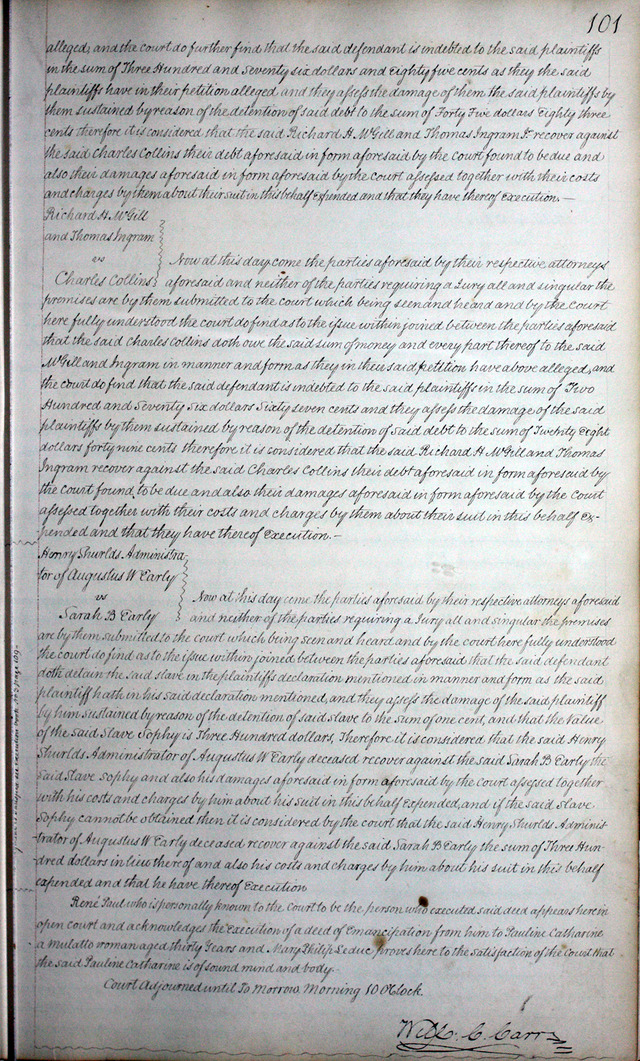 101
alleged, and the court do further find that the said defendant is indebted to the said plaintiffs
in the sum of Three Hundred and Seventy six dollars and Eighty five cents as they the said
plaintiffs have in their petition alleged, and they assess the damage of them the said plaintiffs by
them sustained by reason of the detention of said debt to the sum of Forty Five dollars Eighty three
cents therefore it is considered that the said Richard H. McGill and Thomas Ingram Jr recover against
the said Charles Collins their debt aforesaid in form aforesaid by the court found to be due and
also their damages aforesaid in form aforesaid by the court assessed together with their costs
and charges by them about their suit in this behalf expended and that they have thereof Execution.—
Richard H. McGill
and Thomas Ingram
vs
Charles Collins
Now at this day come the parties aforesaid by their respective attorneys
aforesaid and neither of the parties requiring a Jury all and singular the
premises are by them submitted to the court which being seen and heard and by the Court
here fully understood the court do find as to the issue within joined between the parties aforesaid
that the said Charles Collins doth owe the said sum of money and every part thereof to the said
McGill and Ingram in manner and form as they in their said petition have above alleged, and
the court do find that the said defendant is indebted to the said plaintiffs in the sum of Two
Hundred and Seventy Six dollars Sixty seven cents and they assess the damage of the said
plaintiffs by them sustained by reason of the detention of said debt to the sum of Twenty Eight
dollars forty nine cents therefore it is considered that the said Richard H. McGill and Thomas
Ingram recover against the said Charles Collins their debt aforesaid in form aforesaid by
the court found, to be due and also their damages aforesaid in form aforesaid by the Court
assessed together with their costs and charges by them about their suit in this behalf Ex-
pended and that they have thereof Execution.—
Henry Shurlds Administra-
tor of Augustus W Early
vs
Sarah B Early
Now at this day come the parties aforesaid by their respective attorneys aforesaid
and neither of the parties requiring a Jury all and singular the premises
are by them submitted to the court which being seen and heard and by the court here fully understood
the court do find as to the issue within joined between the parties aforesaid that the said defendant
doth detain the said slave in the plaintiffs declaration mentioned in manner and form as the said
plaintiff hath in his said declaration mentioned, and they assess the damage of the said plaintiff
by him sustained by reason of the detention of said slave to the Sum of one cent, and that the Value
of the Said Slave Sophy is Three Hundred dollars, Therefore it is considered that the said Henry
Shurlds Administrator of Augustus W Early deceased recover against the said Sarah B Early the
said Slave Sophy and also his damages aforesaid in form aforesaid by the Court assessed together
with his costs and charges by him about his suit in this behalf Expended, and if the said Slave
Sophy cannot be obtained then it is considered by the court that the said Henry Shurlds Adminis-
trator of Augustus W Early deceased recover against the said Sarah B Early the sum of Three Hun-
dred dollars in lieu thereof and also his costs and charges by him about his suit in this behalf
expended and that he have thereof Execution
René Paul who is personally known to the Court to be the person who executed said deed appears here in
open court and acknowledges the Execution of a deed of Emancipation from him to Pauline Catharine
a mulatto woman aged thirty Years and Mary Philip Leduc proves here to the Satisfaction of the Court that
the said Pauline Catharine is of sound mind and body.
Court Adjourned until To Morrow Morning 10 O'Clock.
Will: C. Carr